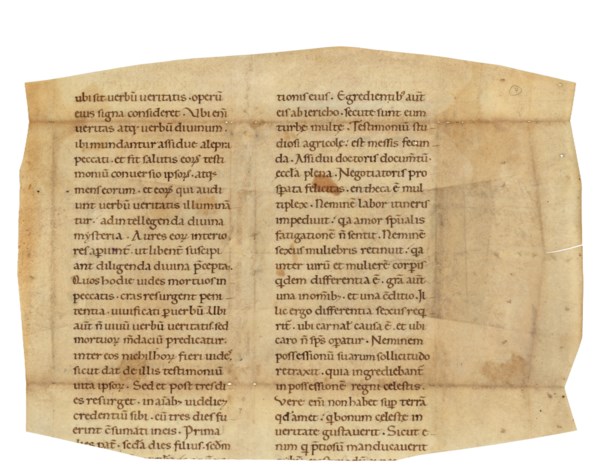 ubi sit verbū veritatis · operū
eius signa consideret · Ubi eni͞
veritas atq; verbū divinum ·
ibi mundantur assidue a lepra
peccati · et fit salutis eoꝝ testi
moniū conversio ipsoꝝ · atq;
mens eorum · et eoꝝ qui audi
unt verbū veritatis illuminā
tur · ad intellegenda divina
mysteria · Aures eoꝝ interio
res apiunt̄ · ut libent̄ suscipi
ant diligenda divina p̄cepta ·
Quos hodie vides mortuos in
peccatis · cras resurgent peni
tentia · vivificati p verbū · Ubi
aut̄ n̄ vivū verbū veritatis sed
mortuoꝝ m̄daciū predicatur ·
inter eos nichil hoꝝ fieri vides
sicut dat de illis testimoniū
vita ipsoꝝ · Sed et post tres di
es resurget · in
credentiū sibi · cū tres dies fu
erint c̄sumati in eis · Prima
dies pat̄ · sc̄da dies filius · sc̄dm
tionis eius · Egredientibꝰ aut̄
eis ab iericho · secute sunt eum
turbe multe · Testimoniū stu
diosi agricole · est messis fecun
da · Assidui doctoris documt̄ū
eccl̄a plena · Negotiatoris pro
spata felicitas · en theca ē mul
tiplex · Neminē labor itineris
impedivit · qa amor sp̄ualis
fatigationē n̄ sentit · Neminē
sexus muliebris retinuit · qa
inter virū et mulierē corp̄is
qdem differentia ē · grā aut̄
una in om̄ibꝫ · et una c̄ditio · Il
lic ergo differentia sexus req
rit̄ · ubi carnal̄ causa ē · et ubi
caro n̄ sp̄s opatur · Neminem
possessionū suarum sollicitudo
retraxit · quia ingrediebant̄
in possessionē regni celestis ·
Vere eni͞ non habet sup terrā
qd amet · q bonum celeste in
veritate gustaverit · Sicut e
nim q p̄tiosū manducaverit